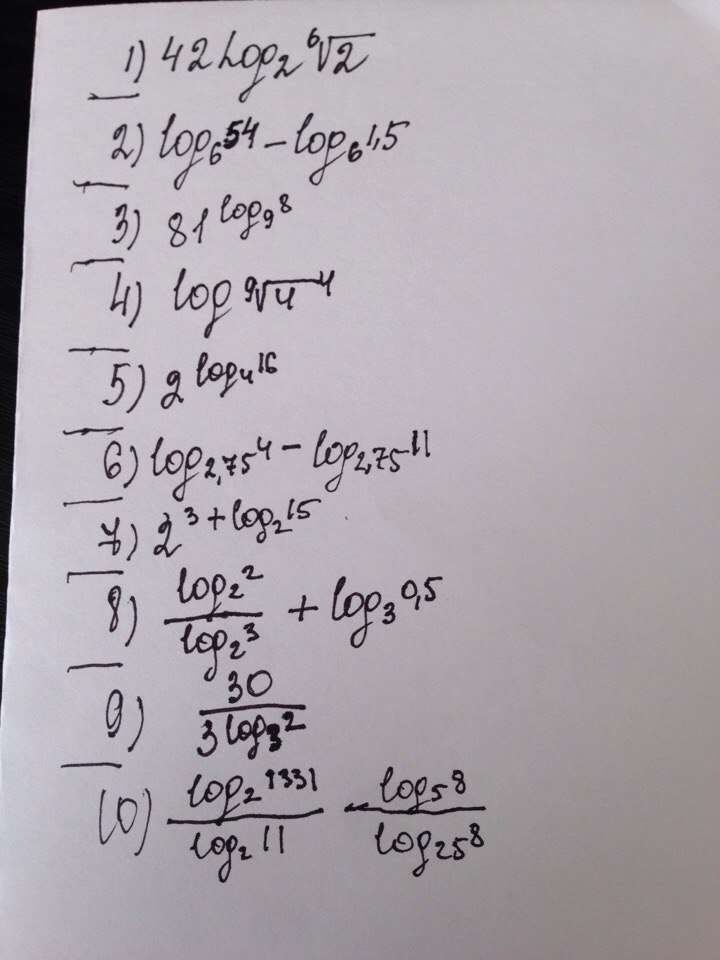 1) 42 Log₂ ⁶√2
2) log₆54 – log₆1,5
3) 81^(log₉8)
4) log ⁹√4 4
5) 2^(log₄16)
6) log₂,₇₅4 – log₂,₇₅11
7) 2^(3 + log₂15)
8) log₂2 / log₂3 + log₃0,5
9) 30 / 3^(log₃2)
10) log₂1331 / log₂11 - log₅8 / log₂₅8